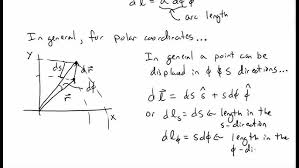 dl = a dφ φ̂
arc length
In general, for polar coordinates...
y
ds
dr
dφ
r
x
In general a point can be
displaced in φ & s directions...
dl = ds ŝ + s dφ φ̂
or dlₛ = ds ← length in the
s-direction
dlφ = s dφ ← length in the
φ-di